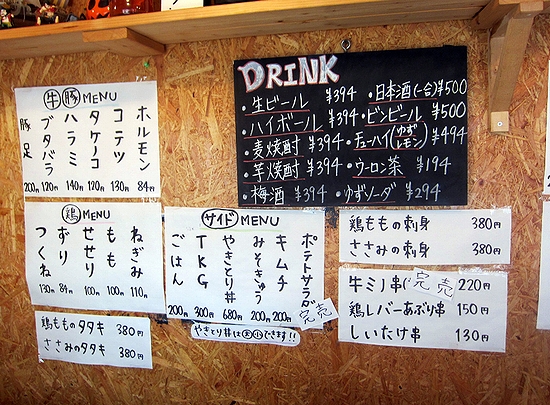 牛豚MENU
ホルモン 84円
コテツ 130円
タケノコ 120円
ハラミ 140円
ブタバラ 120円
豚足 200円
DRINK
・生ビール ¥394
・日本酒(一合)¥500
・ハイボール ¥394
・ビンビール ¥500
・麦焼酎 ¥394
・チューハイ(ゆず レモン) ¥494
・芋焼酎 ¥394
・ウーロン茶 ¥194
・梅酒 ¥394
・ゆずソーダ ¥294
鶏MENU
ねぎみ 110円
もも 100円
せせり 100円
ずり 84円
つくね 130円
サイドMENU
ポテトサラダ 完売
キムチ 200円
みそきゅう 200円
やきとり丼 680円
TKG 300円
ごはん 200円
やきとり丼は大小できます!!
鶏もものタタキ 380円
ささみのタタキ 380円
鶏ももの刺身 380円
ささみの刺身 380円
牛ミノ串( 完売 220円
鶏レバーあぶり串 150円
しいたけ串 130円